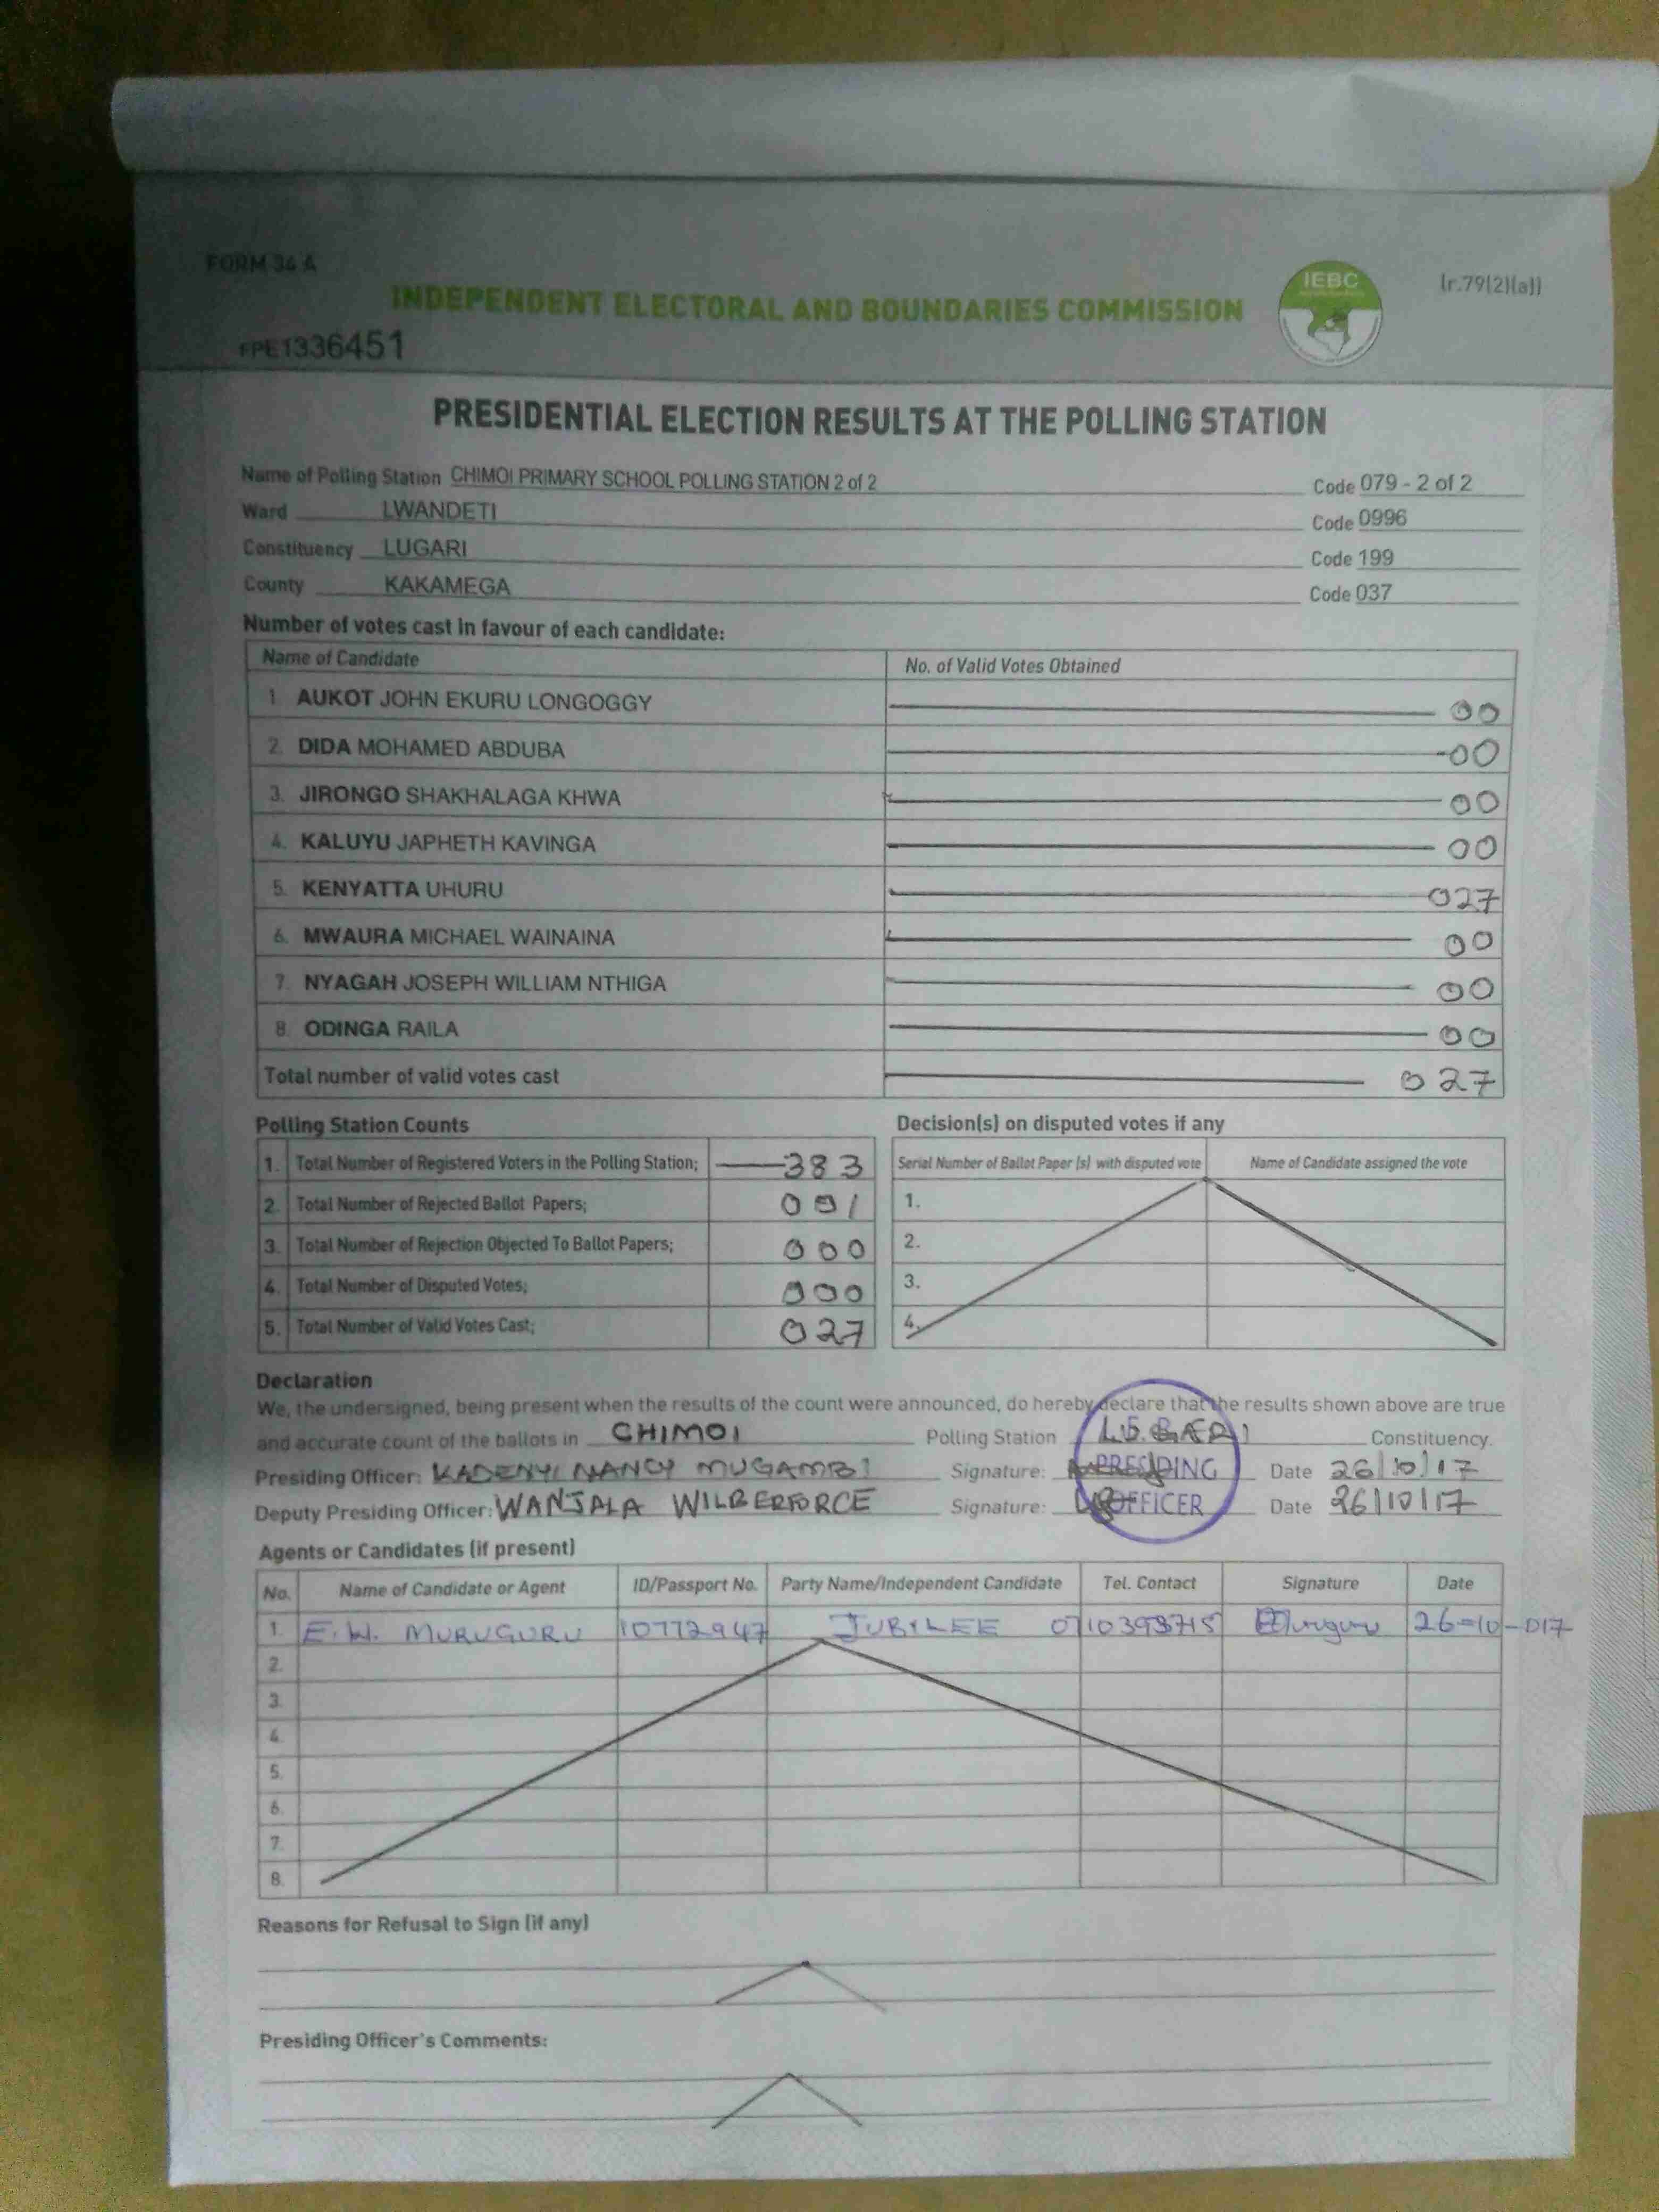 FORM 34 A
INDEPENDENT ELECTORAL AND BOUNDARIES COMMISSION
IEBC
[r.79(2)(a)]
FPE1336451
PRESIDENTIAL ELECTION RESULTS AT THE POLLING STATION
Name of Polling Station CHIMOI PRIMARY SCHOOL POLLING STATION 2 of 2 Code 079 - 2 of 2
Ward LWANDETI Code 0996
Constituency LUGARI Code 199
County KAKAMEGA Code 037
Number of votes cast in favour of each candidate:
Name of Candidate No. of Valid Votes Obtained
1. AUKOT JOHN EKURU LONGOGGY 00
2. DIDA MOHAMED ABDUBA 00
3. JIRONGO SHAKHALAGA KHWA 00
4. KALUYU JAPHETH KAVINGA 00
5. KENYATTA UHURU 027
6. MWAURA MICHAEL WAINAINA 00
7. NYAGAH JOSEPH WILLIAM NTHIGA 00
8. ODINGA RAILA 00
Total number of valid votes cast 027
Polling Station Counts
1. Total Number of Registered Voters in the Polling Station; 383
2. Total Number of Rejected Ballot Papers; 001
3. Total Number of Rejection Objected To Ballot Papers; 000
4. Total Number of Disputed Votes; 000
5. Total Number of Valid Votes Cast; 027
Decision(s) on disputed votes if any
Serial Number of Ballot Paper (s) with disputed vote Name of Candidate assigned the vote
1.
2.
3.
4.
Declaration
We, the undersigned, being present when the results of the count were announced, do hereby declare that the results shown above are true
and accurate count of the ballots in CHIMOI Polling Station Constituency.
Presiding Officer: KADENYI NANCY MUGAMBI Signature: Date 26/10/17
Deputy Presiding Officer: WANJALA WILBERFORCE Signature: Date 26/10/17
PRESIDING
OFFICER
Agents or Candidates (if present)
No. Name of Candidate or Agent ID/Passport No. Party Name/Independent Candidate Tel. Contact Signature Date
1. E.W. MURUGURU 10772947 JUBILEE 26-10-017
2.
3.
4.
5.
6.
7.
8.
Reasons for Refusal to Sign (if any)
Presiding Officer's Comments: